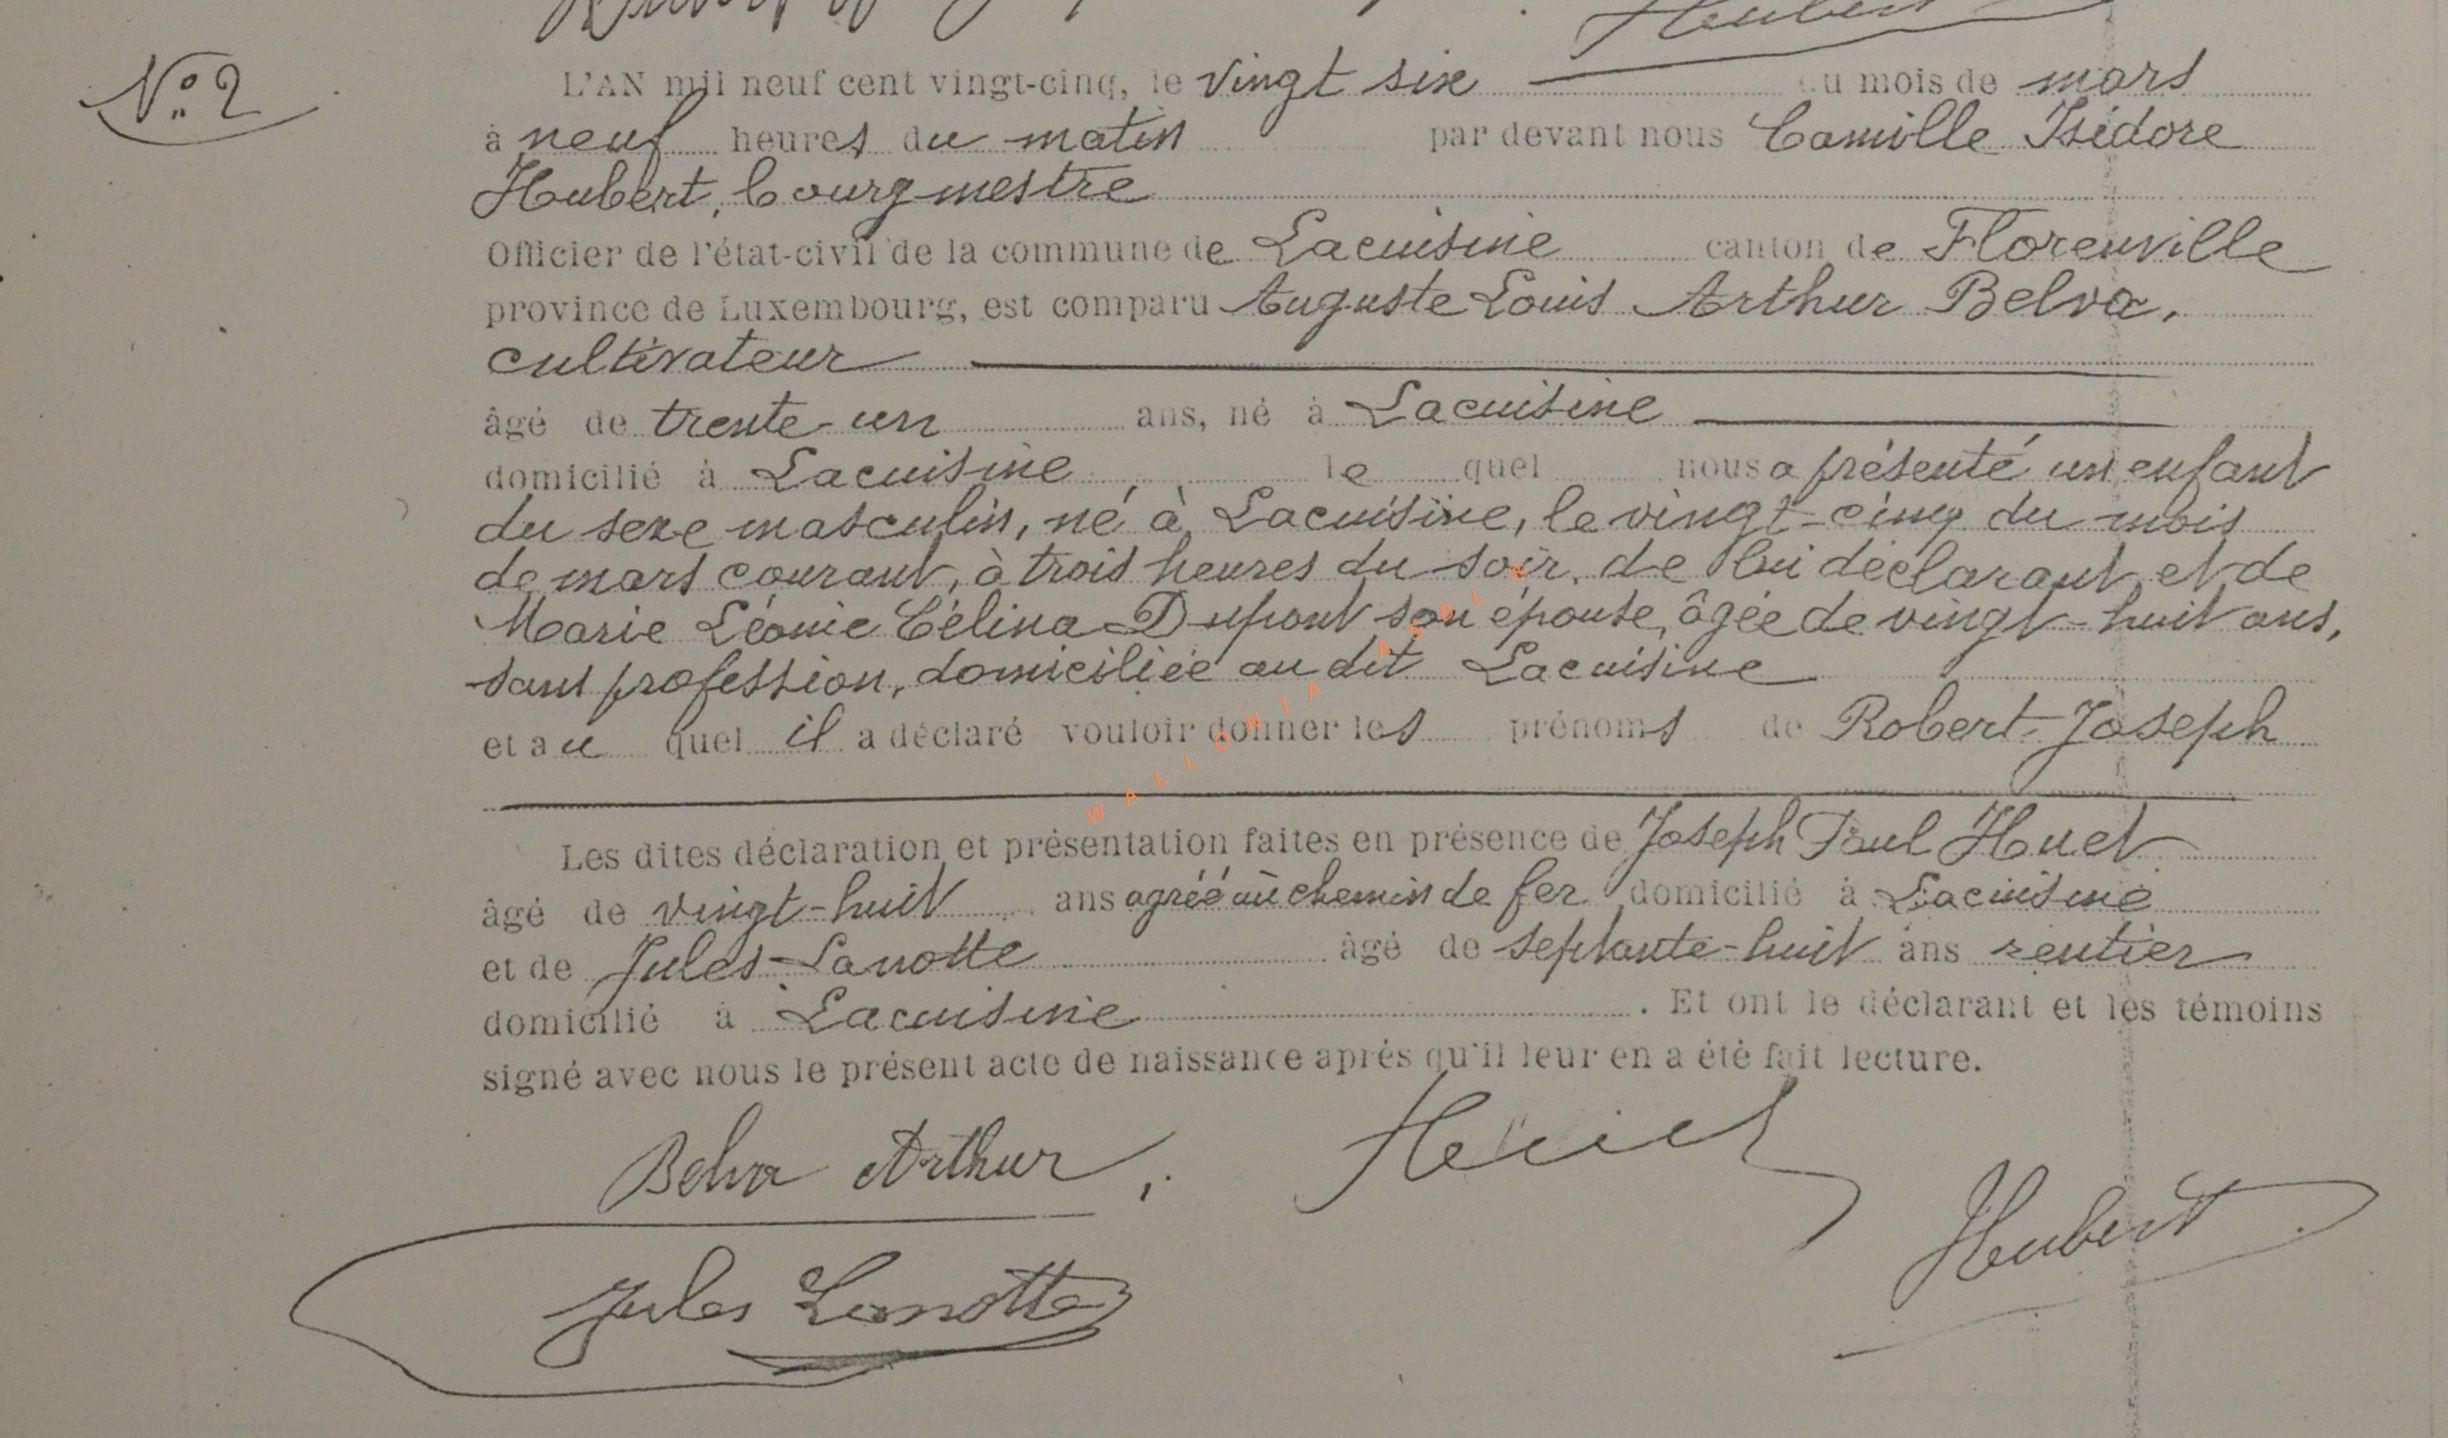 Hubert
N° 2
L'AN mil neuf cent vingt-cinq, le vingt six du mois de mars
à neuf heures du matin par devant nous Camille Isidore
Hubert, bourgmestre
Officier de l'état-civil de la commune de Lacuisine canton de Florenville
province de Luxembourg, est comparu Auguste Louis Arthur Belva,
cultivateur
âgé de trente-un ans, né à Lacuisine
domicilié à Lacuisine le quel nous a présenté un enfant
du sexe masculin, né à Lacuisine, le vingt-cinq du mois
de mars courant, à trois heures du soir, de lui déclarant et de
Marie Léonie Célina Dupont son épouse, âgée de vingt-huit ans,
sans profession, domiciliée au dit Lacuisine
et au quel il a déclaré vouloir donner les prénoms de Robert-Joseph
Les dites déclaration et présentation faites en présence de Joseph Paul Huet
âgé de vingt-huit ans agréé au chemin de fer domicilié à Lacuisine
et de Jules Lanotte âgé de septante-huit ans rentier
domicilié à Lacuisine. Et ont le déclarant et les témoins
signé avec nous le présent acte de naissance après qu'il leur en a été fait lecture.
Belva Arthur, Huet
Hubert
Jules Lanotte
WALLONIA ASBL